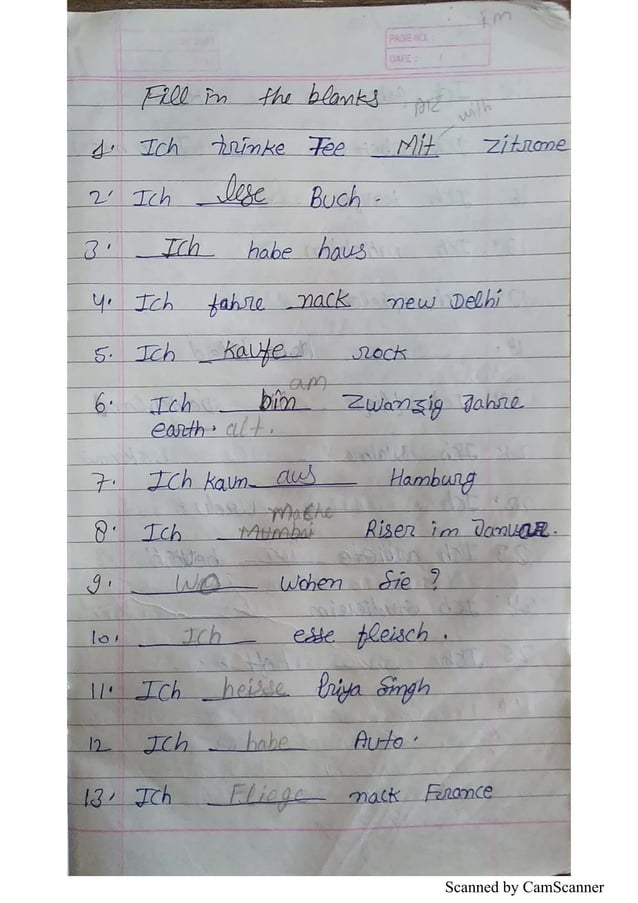 im
PAGE NO.:
DATE:
Fill in the blanks
with
1. Ich trinke Tee Mit Zitrone
2. Ich lese Buch.
3. Ich habe haus
4. Ich fahre nack new Delhi
5. Ich kaufe rock
am
6. Ich bin Zwanzig Jahre
earth. alt.
7. Ich kaun aus Hamburg
Mache
8. Ich Mumbai Riser im Januar.
9. Wo Wohen Sie?
10. Ich esse fleisch.
11. Ich heisse Priya Singh
12 Ich habe Auto.
13. Ich Fliege nack Firance
Scanned by CamScanner